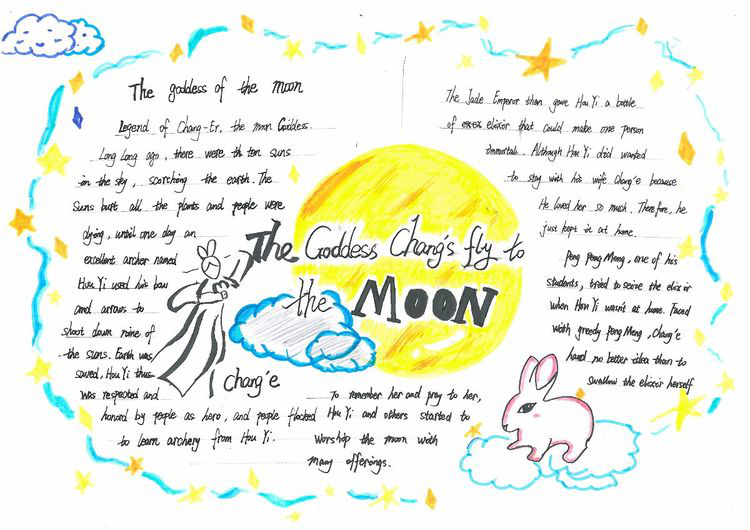 The goddess of the moon
Legend of Chang-Er, the moon Goddess.
Long Long ago, there were th ten suns
in the sky, scorching the earth. The
Suns burt all the plants and people were
dying, until one day an
excellent archer named
Hou Yi used his bow
and arrows to
shoot down nine of
the suns. Earth was
saved, Hou Yi thus
was respected and
honord by people as hero, and people flocked
to learn archery from Hou Yi.
The Goddess Chang's fly to
the MOON
chang'e
The Jade Emperor than gave Hou Yi a bottle
of elixir that could make one person
immortal. Although Hou Yi did wanted
to stay with his wife Chang'e because
He loved her so much. Therefore, he
just kept it at home.
peng peng Meng, one of his
students, tried to seize the elixir
when Hou Yi wasn't at home. Faced
with greedy peng Meng, Chang'e
hand no better idea than to
swallow the elixir herself
To remember her and pray to her,
Hou Yi and others started to
worship the moon with
many offerings.